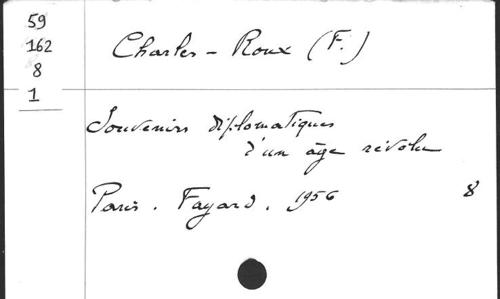 59
162
8
1
Charles-Roux (F.)
Souvenirs diplomatiques
d'un âge révolu
Paris. Fayard. 1956 8